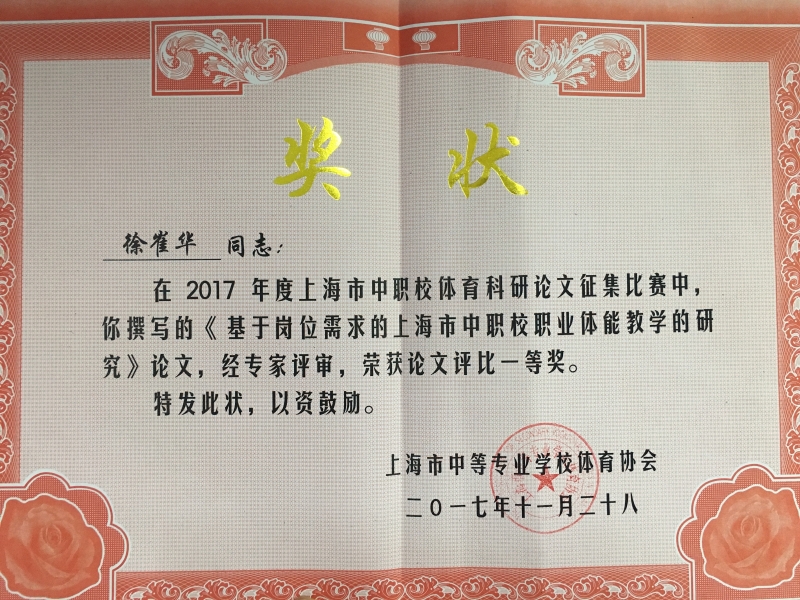 奖 状
徐崔华 同志：
在 2017 年度上海市中职校体育科研论文征集比赛中，
你撰写的《基于岗位需求的上海市中职校职业体能教学的研
究》论文，经专家评审，荣获论文评比一等奖。
特发此状，以资鼓励。
上海市中等专业学校体育协会
二〇一七年十一月二十八